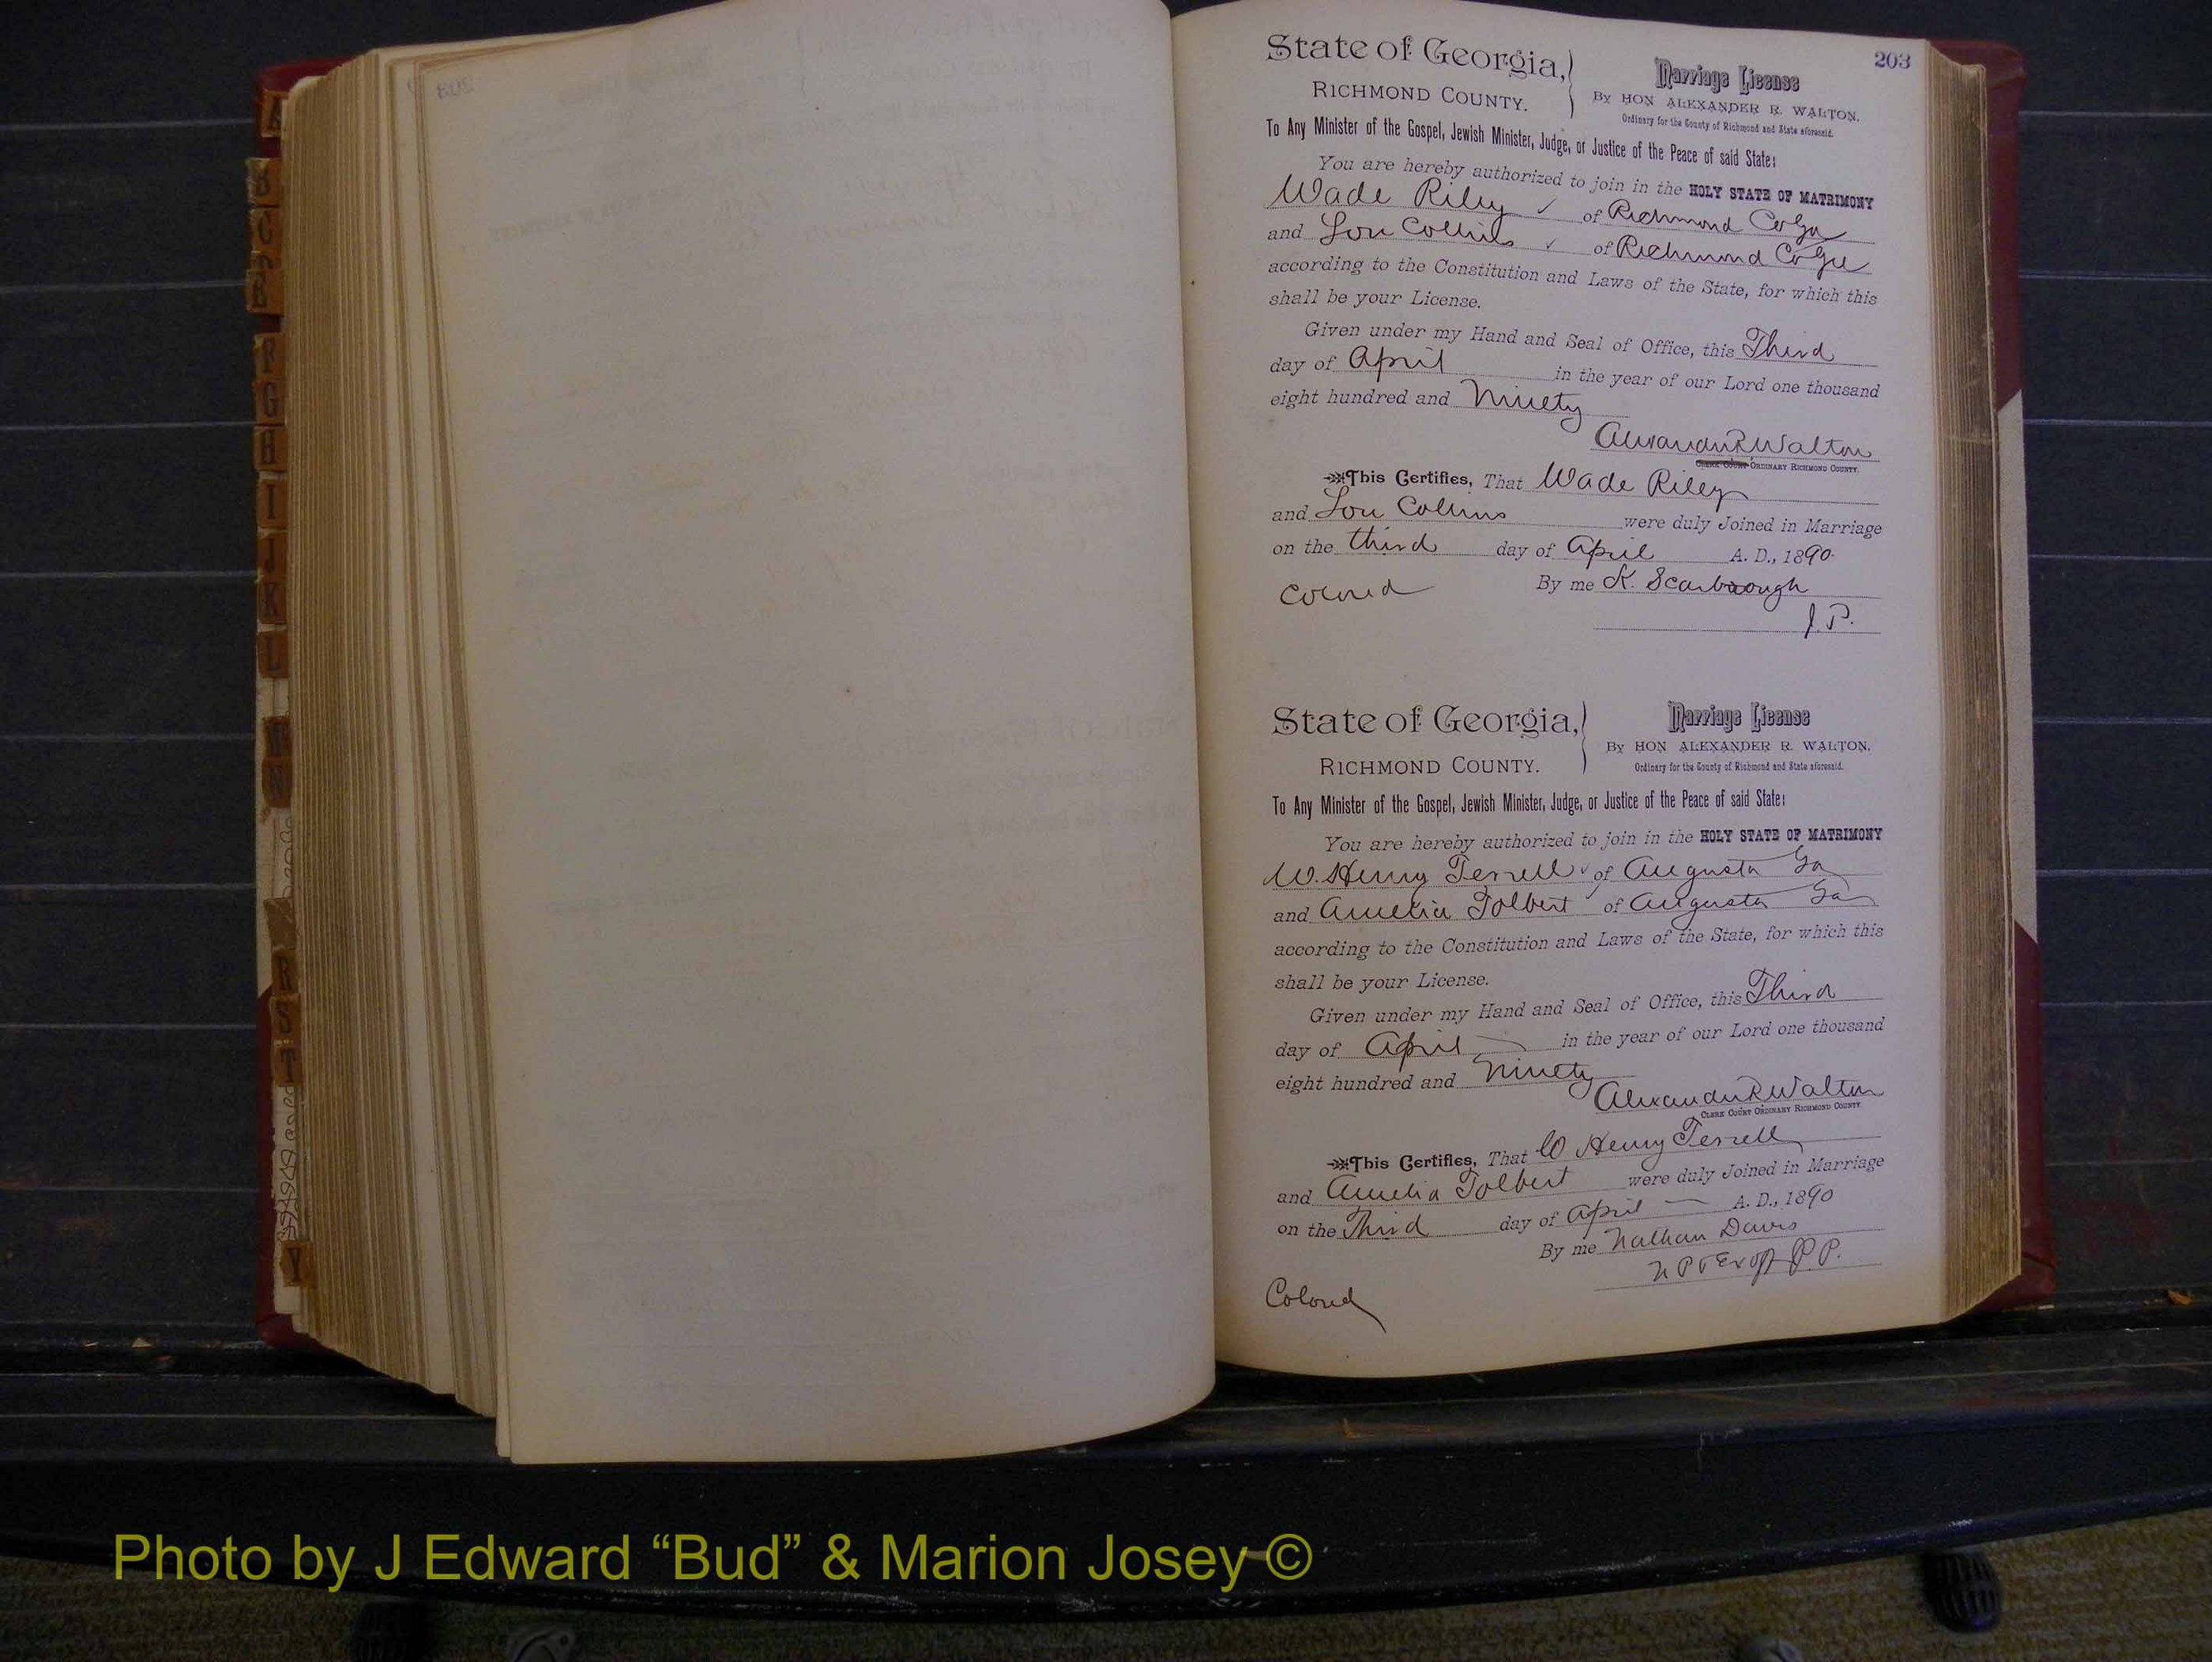 203
State of Georgia,
RICHMOND COUNTY.
Marriage License
By HON ALEXANDER R. WALTON.
Ordinary for the County of Richmond and State aforesaid.
To Any Minister of the Gospel, Jewish Minister, Judge, or Justice of the Peace of said State:
You are hereby authorized to join in the HOLY STATE OF MATRIMONY
Wade Riley ✓ of Richmond Co Ga
and Lou Collins ✓ of Richmond Co Ga
according to the Constitution and Laws of the State, for which this
shall be your License.
Given under my Hand and Seal of Office, this Third
day of April in the year of our Lord one thousand
eight hundred and Ninety
Alexander R Walton
CLERK COURT ORDINARY RICHMOND COUNTY.
This Certifies, That Wade Riley
and Lou Collins were duly Joined in Marriage
on the third day of April A. D., 1890.
Colored By me K. Scarborough
J. P.
State of Georgia,
RICHMOND COUNTY.
Marriage License
By HON ALEXANDER R. WALTON.
Ordinary for the County of Richmond and State aforesaid.
To Any Minister of the Gospel, Jewish Minister, Judge, or Justice of the Peace of said State:
You are hereby authorized to join in the HOLY STATE OF MATRIMONY
W. Henry Terrell ✓ of Augusta Ga
and Amelia Tolbert ✓ of Augusta Ga
according to the Constitution and Laws of the State, for which this
shall be your License.
Given under my Hand and Seal of Office, this Third
day of April in the year of our Lord one thousand
eight hundred and Ninety
Alexander R Walton
CLERK COURT ORDINARY RICHMOND COUNTY.
This Certifies, That W Henry Terrell
and Amelia Tolbert were duly Joined in Marriage
on the Third day of April A. D., 1890
By me Nathan Davis
N P & Ex off J. P.
Colored
B
C
D
F
G
H
I
J
K
L
N
R
S
T
Y
Photo by J Edward “Bud” & Marion Josey ©